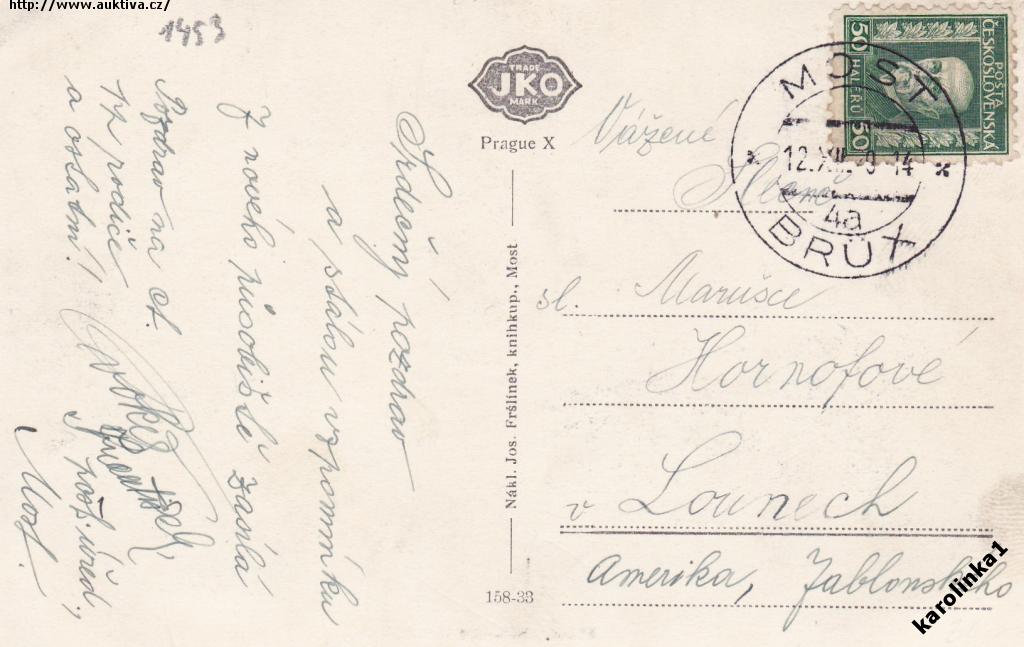 http://www.auktiva.cz/
1453
Srdečný pozdrav
a stálou vzpomínku
Z nového působiště zasílá
Pozdrav na ct.
rodiče
a ostatní!
pošt. úřed.,
Most.
TRADE
JKO
MARK
Prague X
Nákl. Jos. Fršlínek, knihkup., Most
158-33
POŠTA
ČESKOSLOVENSKÁ
50 HALÉŘŮ 50
MOST
12.XII. -14
4a
BRÜX
Vážené
Slečně
sl. Marušce
Hornofové
v Lounech
Amerika, Jablonského
karolinka1